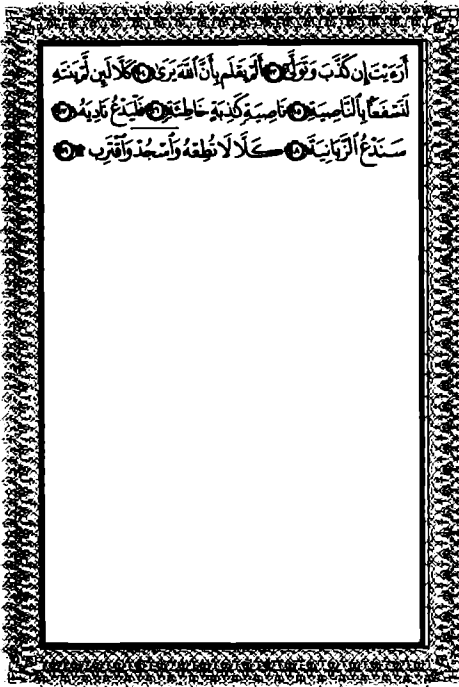 أَرَءَيْتَ إِن كَذَّبَ وَتَوَلَّىٰٓ ١٣ أَلَمْ يَعْلَم بِأَنَّ ٱللَّهَ يَرَىٰ ١٤ كَلَّا لَئِن لَّمْ يَنتَهِ
لَنَسْفَعًۢا بِٱلنَّاصِيَةِ ١٥ نَاصِيَةٍ كَٰذِبَةٍ خَاطِئَةٍ ١٦ فَلْيَدْعُ نَادِيَهُۥ ١٧
سَنَدْعُ ٱلزَّبَانِيَةَ ١٨ كَلَّا لَا تُطِعْهُ وَٱسْجُدْ وَٱقْتَرِب ۩ ١٩